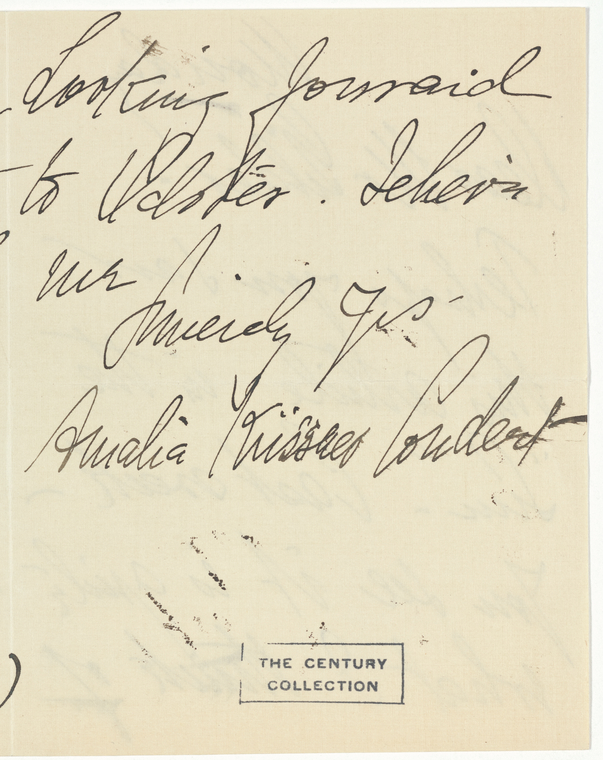 Looking forward
to Udstées. Believe
me
Sincerely Yrs
Amalia Küssner Coudert
THE CENTURY
COLLECTION